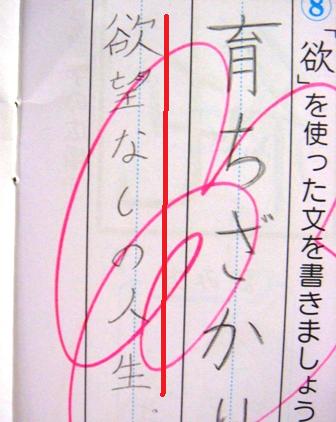 ⑧
「欲」を使った文を書きましょう
育ちざかり
欲望なしの人生。